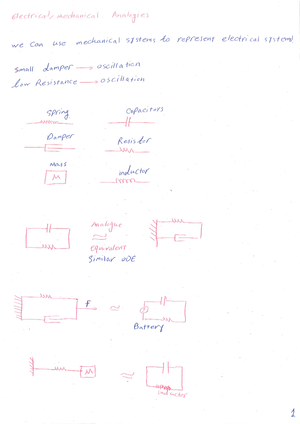 Electrical, mechanical Analogies
we can use mechanical systems to represent electrical systems
small damper → oscillation
low Resistance → oscillation
spring Capacitors
Damper Resistor
Mass inductor
M
Analogue
equivalent
Similar ODE
F
Battery
M
inductor
1